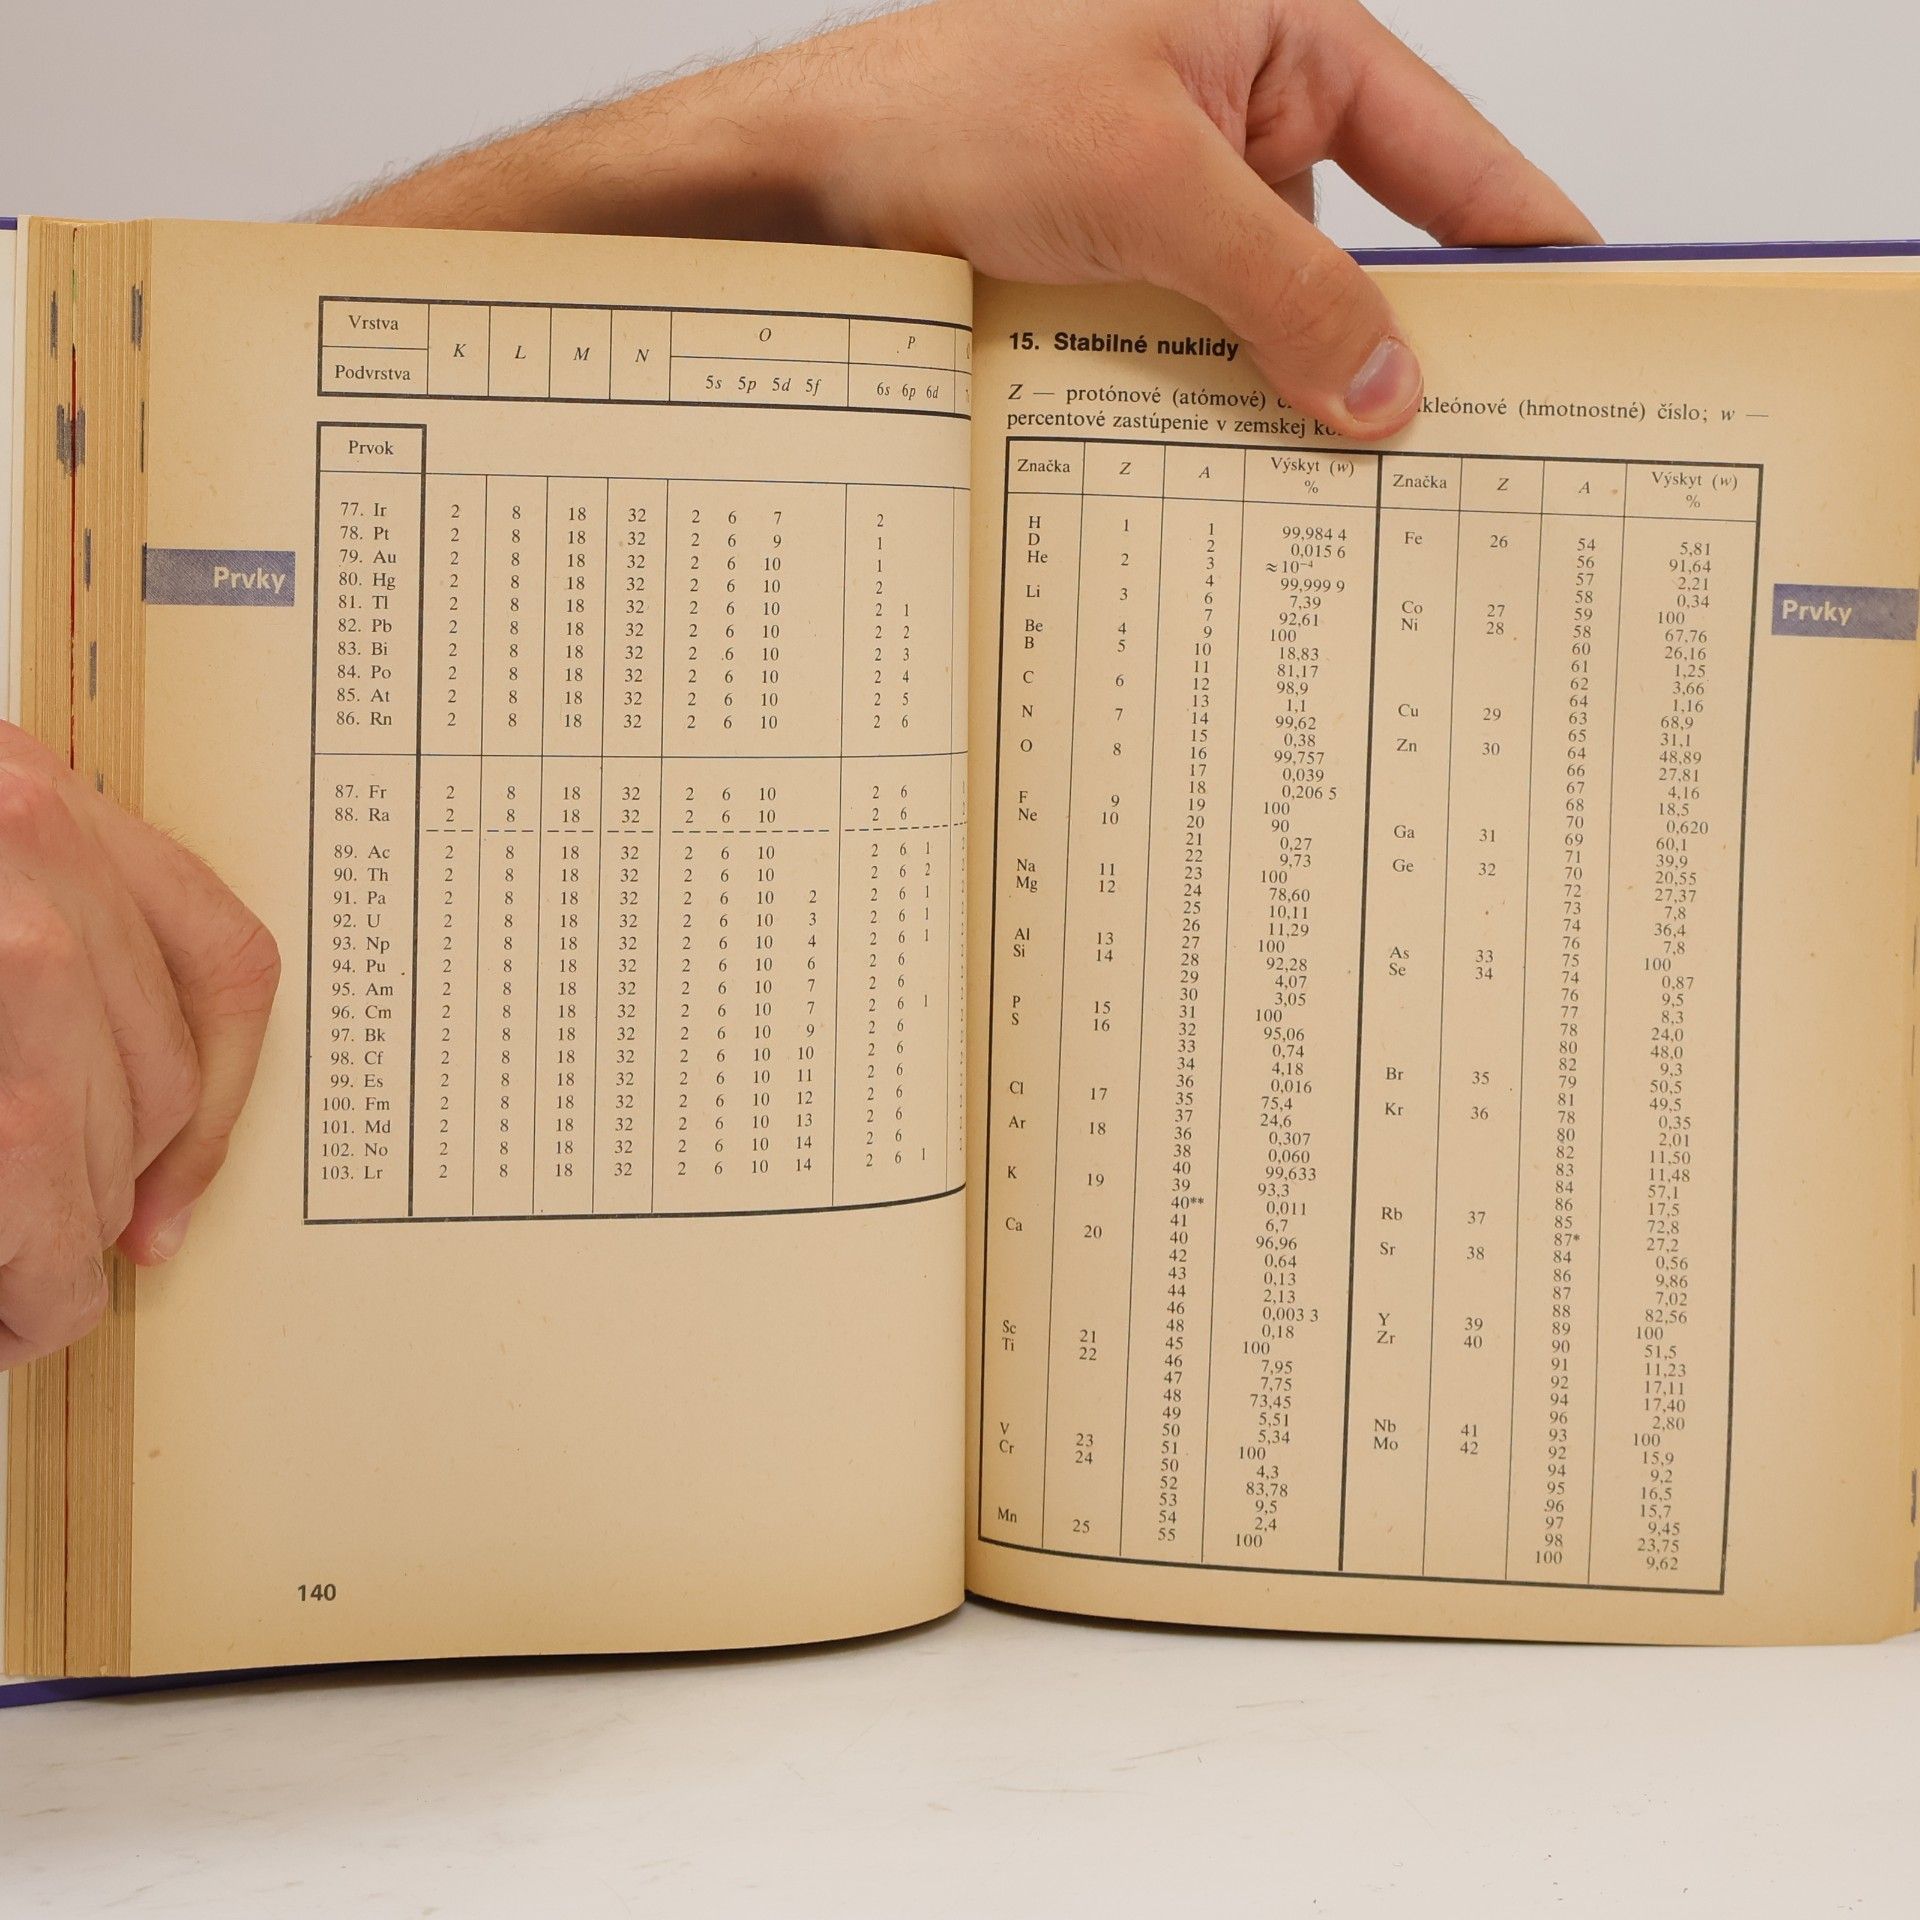 Vrstva K L M N O P
Podvrstva 5s 5p 5d 5f 6s 6p 6d
Prvok
77. Ir 2 8 18 32 2 6 7 2
78. Pt 2 8 18 32 2 6 9 1
79. Au 2 8 18 32 2 6 10 1
80. Hg 2 8 18 32 2 6 10 2
81. Tl 2 8 18 32 2 6 10 2 1
82. Pb 2 8 18 32 2 6 10 2 2
83. Bi 2 8 18 32 2 6 10 2 3
84. Po 2 8 18 32 2 6 10 2 4
85. At 2 8 18 32 2 6 10 2 5
86. Rn 2 8 18 32 2 6 10 2 6
87. Fr 2 8 18 32 2 6 10 2 6
88. Ra 2 8 18 32 2 6 10 2 6
89. Ac 2 8 18 32 2 6 10 2 6 1
90. Th 2 8 18 32 2 6 10 2 6 2
91. Pa 2 8 18 32 2 6 10 2 2 6 1
92. U 2 8 18 32 2 6 10 3 2 6 1
93. Np 2 8 18 32 2 6 10 4 2 6 1
94. Pu 2 8 18 32 2 6 10 6 2 6
95. Am 2 8 18 32 2 6 10 7 2 6
96. Cm 2 8 18 32 2 6 10 7 2 6 1
97. Bk 2 8 18 32 2 6 10 9 2 6
98. Cf 2 8 18 32 2 6 10 10 2 6
99. Es 2 8 18 32 2 6 10 11 2 6
100. Fm 2 8 18 32 2 6 10 12 2 6
101. Md 2 8 18 32 2 6 10 13 2 6
102. No 2 8 18 32 2 6 10 14 2 6
103. Lr 2 8 18 32 2 6 10 14 2 6 1
Prvky
140
15. Stabilné nuklidy
Z — protónové (atómové) (hmotnostné) číslo; w —
percentové zastúpenie v zemskej
Značka Z A Výskyt (w) %
H 1 1 99,984 4
D 2 0,015 6
He 2 3 ≈10⁻⁴
4 99,999 9
Li 3 6 7,39
7 92,61
Be 4 9 100
B 5 10 18,83
11 81,17
C 6 12 98,9
13 1,1
N 7 14 99,62
15 0,38
O 8 16 99,757
17 0,039
18 0,206 5
F 9 19 100
Ne 10 20 90
21 0,27
22 9,73
Na 11 23 100
Mg 12 24 78,60
25 10,11
26 11,29
Al 13 27 100
Si 14 28 92,28
29 4,07
30 3,05
P 15 31 100
S 16 32 95,06
33 0,74
34 4,18
36 0,016
Cl 17 35 75,4
37 24,6
Ar 18 36 0,307
38 0,060
40 99,633
K 19 39 93,3
40** 0,011
41 6,7
Ca 20 40 96,96
42 0,64
43 0,13
44 2,13
46 0,003 3
48 0,18
Sc 21 45 100
Ti 22 46 7,95
47 7,75
48 73,45
49 5,51
50 5,34
V 23 51 100
Cr 24 50 4,3
52 83,78
53 9,5
54 2,4
Mn 25 55 100
Značka Z A Výskyt (w) %
Fe 26 54 5,81
56 91,64
57 2,21
58 0,34
Co 27 59 100
Ni 28 58 67,76
60 26,16
61 1,25
62 3,66
64 1,16
Cu 29 63 68,9
65 31,1
Zn 30 64 48,89
66 27,81
67 4,16
68 18,5
70 0,620
Ga 31 69 60,1
71 39,9
Ge 32 70 20,55
72 27,37
73 7,8
74 36,4
76 7,8
As 33 75 100
Se 34 74 0,87
76 9,5
77 8,3
78 24,0
80 48,0
82 9,3
Br 35 79 50,5
81 49,5
Kr 36 78 0,35
80 2,01
82 11,50
83 11,48
84 57,1
86 17,5
Rb 37 85 72,8
87* 27,2
Sr 38 84 0,56
86 9,86
87 7,02
88 82,56
Y 39 89 100
Zr 40 90 51,5
91 11,23
92 17,11
94 17,40
96 2,80
Nb 41 93 100
Mo 42 92 15,9
94 9,2
95 16,5
96 15,7
97 9,45
98 23,75
100 9,62
Prvky